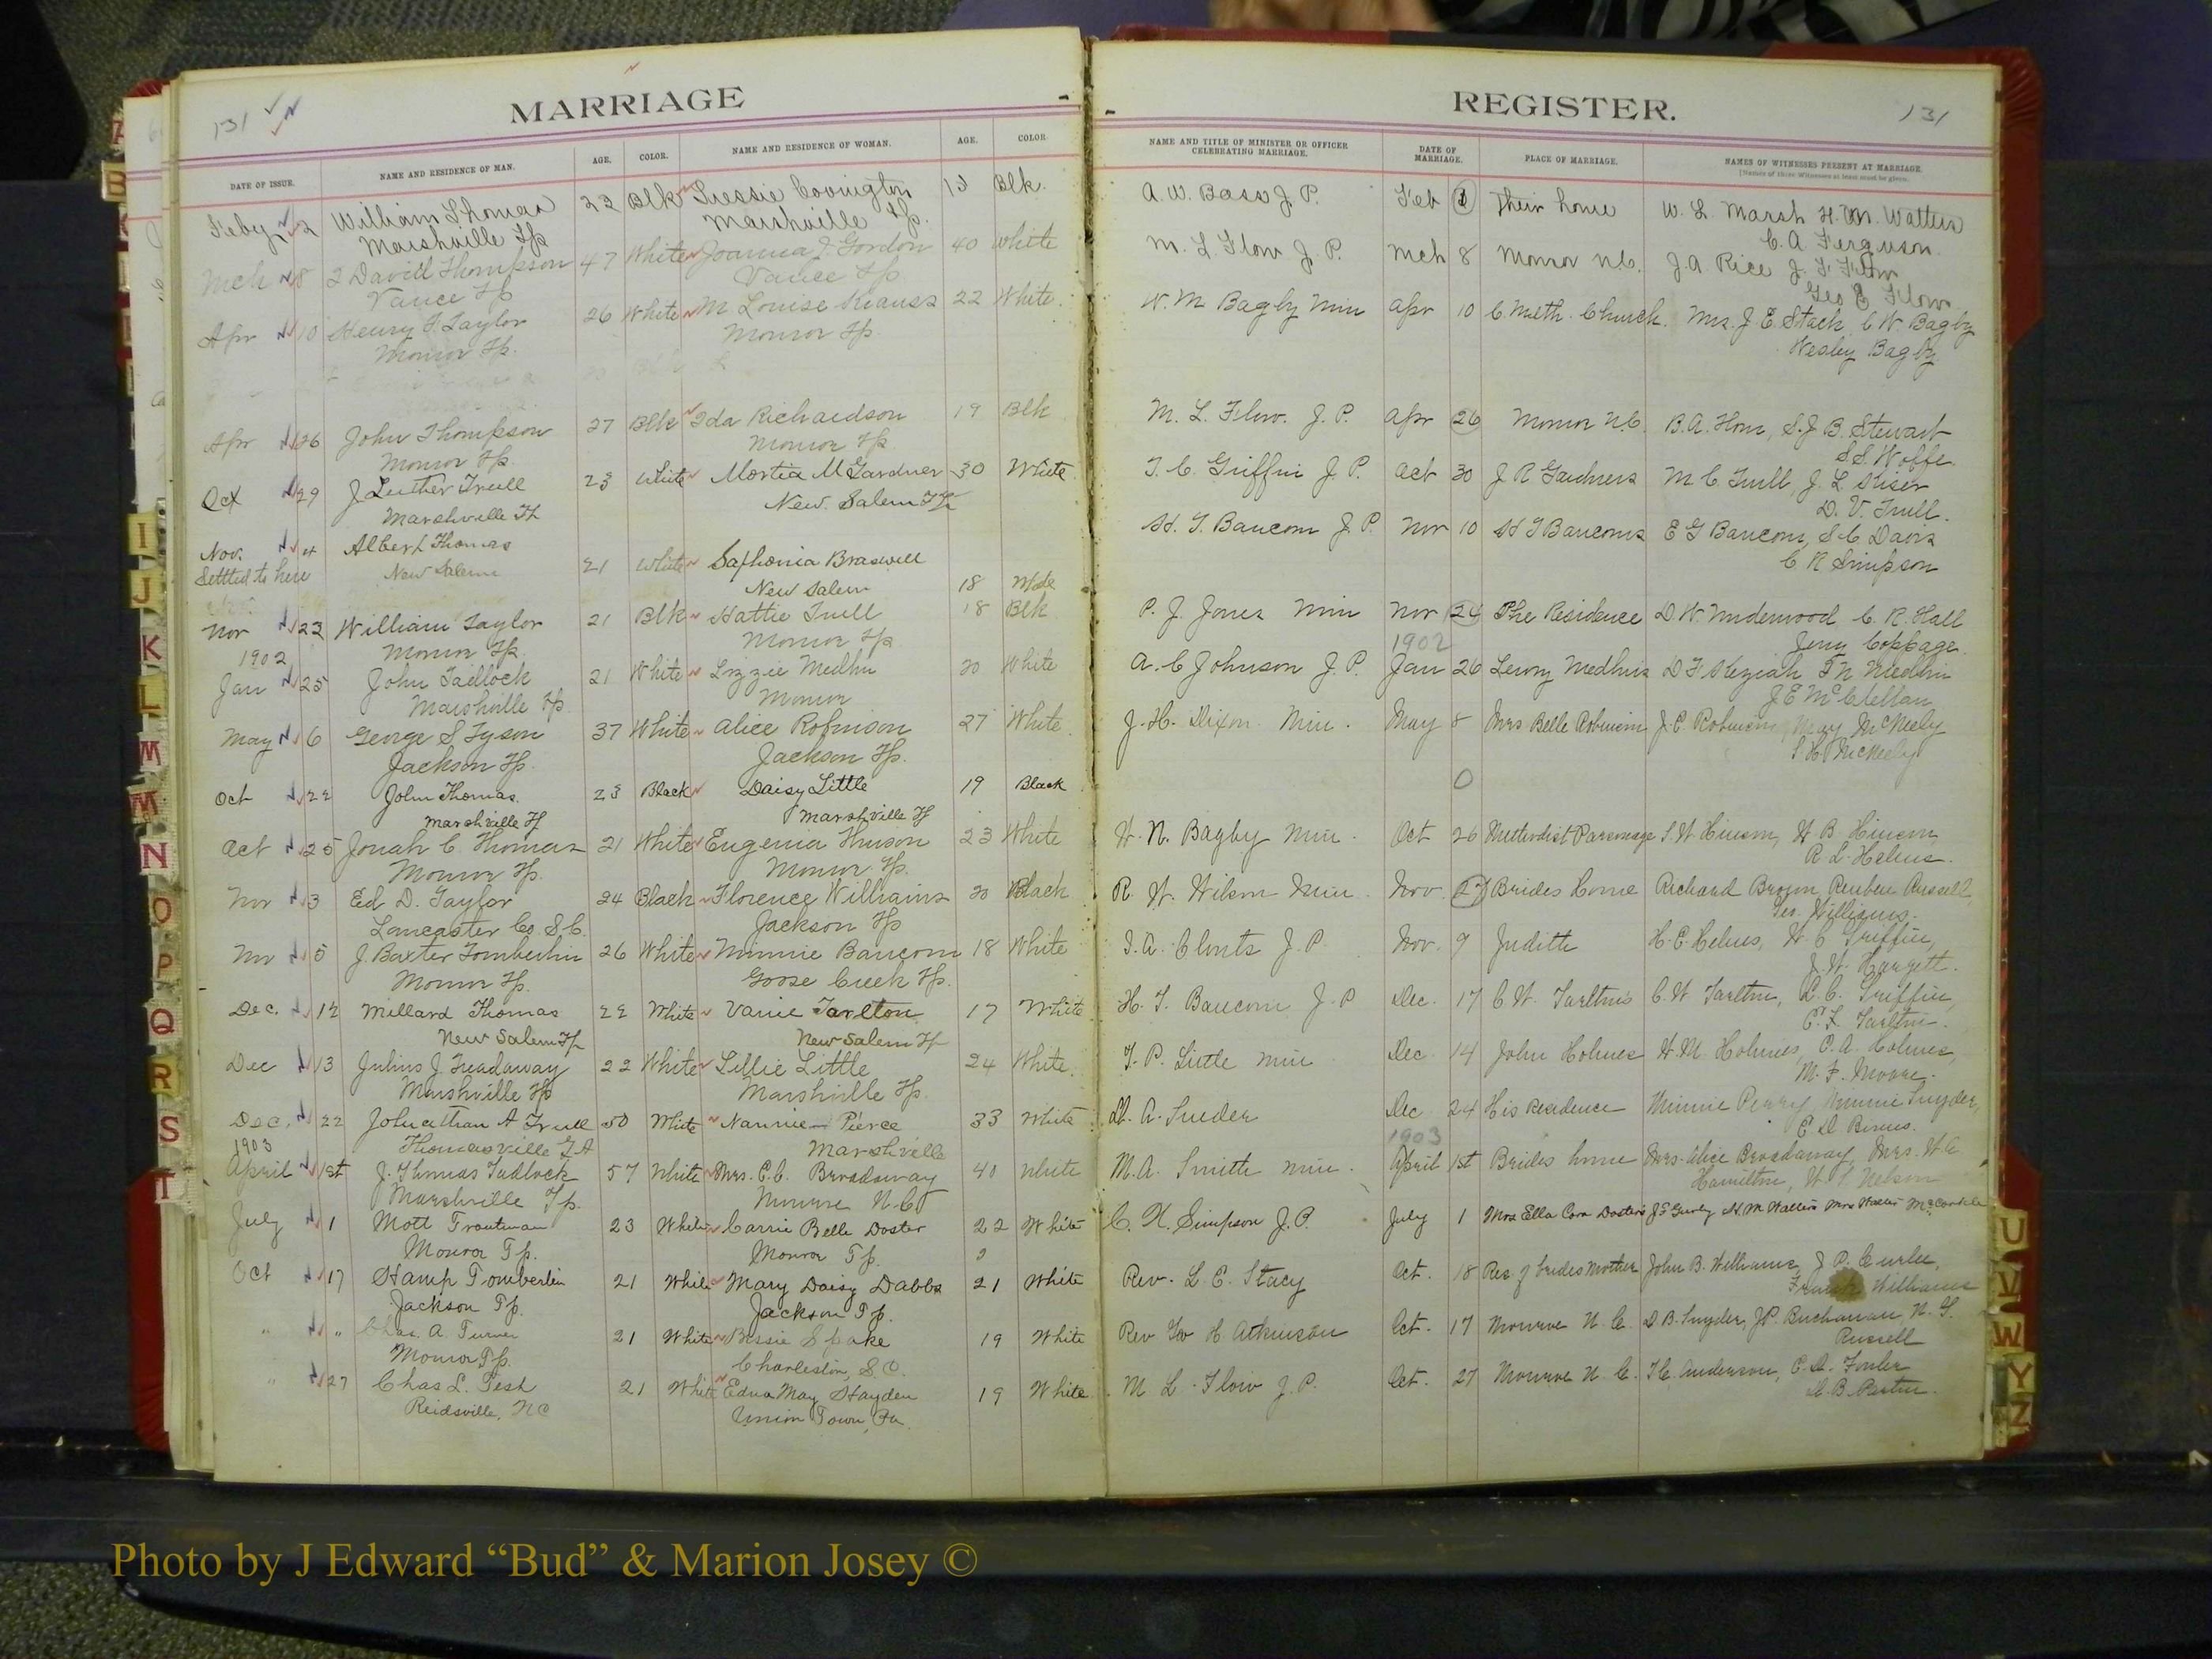 131
MARRIAGE
DATE OF ISSUE.
NAME AND RESIDENCE OF MAN.
AGE.
COLOR.
NAME AND RESIDENCE OF WOMAN.
AGE.
COLOR.
Feby 2 William Thomas 22 Blk Covington Blk.
Marshville Tp Marshville Tp.
Mch 8 Thompson 47 White Joanna Gordon 40 White
Vance Tp Vance Tp
Apr 10 Henry F. Taylor 26 White M Louise Krauss 22 White
Monroe Tp. Monroe Tp.
Apr 26 John Thompson 27 Blk Ida Richardson 19 Blk
Monroe Tp. Monroe Tp
Oct 29 J Luther Trull 23 White M Gardner 30 White
Marshville Tp New Salem Tp
Nov. 4 Albert Thomas 21 White Saphonia Braswell
Settled to here New Salem New Salem 18 White
Nov 23 William Taylor 21 Blk Hattie Trull 18 Blk
1902 Monroe Tp. Monroe Tp
Jan 25 John Tadlock 21 White Lizzie Medlin 20 White
Marshville Tp. Monroe
May 6 George S Tyson 37 White Alice Robinson 27 White
Jackson Tp. Jackson Tp.
Oct 22 John Thomas 23 Black Daisy Little 19 Black
Marshville Tp Marshville Tp
Oct 25 Jonah C. Thomas 21 White Eugenia Hinson 23 White
Monroe Tp. Monroe Tp.
Nov 3 Ed D. Taylor 24 Black Florence Williams 20 Black
Lancaster Co S.C. Jackson Tp
Nov 5 J. Baxter Tomberlin 26 White Minnie Baucom 18 White
Monroe Tp. Goose Creek Tp.
Dec. 12 Millard Thomas 22 White Vanie Tarlton 17 White
New Salem Tp New Salem Tp
Dec 13 Julius J. Treadaway 22 White Lillie Little 24 White
Marshville Tp Marshville Tp.
Dec. 22 Johnathan A Trull 50 White Nannie Pierce 33 White
1903 Thomasville GA Marshville
April 1st J. Thomas Tadlock 57 White Mrs. C.C. Broadaway 40 White
Marshville Tp. Monroe N.C.
July 1 Mott Troutman 23 White Carrie Belle Doster 22 White
Monroe Tp. Monroe Tp.
Oct 17 Stamp Tomberlin 21 White Mary Daisy Dabbs 21 White
Jackson Tp. Jackson Tp.
" " Chas. A. Turner 21 White Bessie Spake 19 White
Monroe Tp. Charleston, S.C.
" 27 Chas L. Tesh 21 White Edna May Hayden 19 White
Reidsville, NC Union Town, Pa
REGISTER.
131
NAME AND TITLE OF MINISTER OR OFFICER CELEBRATING MARRIAGE.
DATE OF MARRIAGE.
PLACE OF MARRIAGE.
NAMES OF WITNESSES PRESENT AT MARRIAGE.
[Names of three Witnesses at least must be given.
A. W. Bass J. P. Feb Their home W. L. Marsh H. M. Watters
C. A. Ferguson.
M. L. Flow J. P. Mch 8 Monroe N.C. J. A. Rice J. F. Flow
Geo E Flow
W. M Bagby Min Apr 10 C. Meth. Church. Mrs. J. E. Stack, C W Bagby
Wesley Bagby
M. L. Flow. J. P. Apr 26 Monroe N.C. B. A. Horn, S. J. B. Stewart
S S. Wolfe.
T. C. Griffin J. P. Oct 30 J R Gardners M C Trull J. L Kiser
D. V. Trull.
H. T. Baucom J. P. Nov 10 H T Baucoms E G Baucom, S. C Davis
C R Simpson
P. J. Jones Min Nov 24 The Residence D. W. Underwood C. R. Hall
1902 Jerry Coppage
A. C Johnson J. P. Jan 26 Leroy Medlins D F Keziah Medlin
J E McClellan
J. H. Dixon Min. May 8 Mrs Belle Robinson J. C. Robinson, May McNeely
McNeely
0
W. R. Bagby Min. Oct 26 Methodist Parsonage S. W Hinson, W B. Hinson
R. L. Helms.
R. W. Wilson Min. Nov. 27 Brides home Richard Brown, Reuben Russell
Geo. Williams.
I. A. Clonts J. P. Nov. 9 Judith H. C. Helms, W. C Griffin,
J. W. Hargett.
H. T. Baucom J. P Dec. 17 C. W. Tarltons C. W Tarlton, L. C. Griffin,
Tarlton.
T. P. Little Min Dec. 14 John Holmes H. M. Holmes, O. A. Holmes,
M. F. Moore.
D. A. Snider Dec 24 His residence Minnie Perry, Minnie Snyder,
1903 C D Bivens.
M. A. Smith Min. April 1st Brides home Mrs. Alice Broadaway, Mrs. W. A.
Hamilton, W. S. Nelson
C. N. Simpson J. P. July 1 Mrs Ella Cora Dosters
Rev. L. E. Stacy Oct. 18 Res. of brides mother John B. Williams, J. P. Curlee,
Williams
Rev H Atkinson Oct. 17 Monroe N.C. D. B. Snyder, J.P. Buchanan N. G.
Russell
M L. Flow J. P. Oct. 27 Monroe N.C. T. C. Anderson, C. D. Fowler
I
J
K
L
M
Mc
N
O
P
Q
R
S
T
U
V
W
Y
Z
Photo by J Edward “Bud” & Marion Josey ©